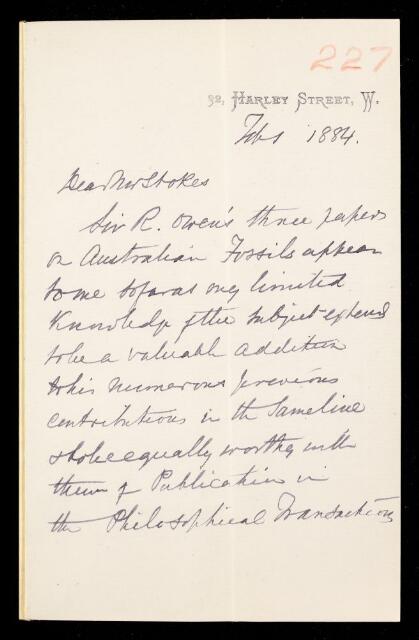 227
92, HARLEY STREET, W.
Feb 1 1884.
Dear Mr Stokes
Sir R. Owen's three papers
on Australian Fossils appear
to me so far as my limited
Knowledge of the subject extend
to be a valuable addition
to his numerous previous
contributions in the same line
& to be equally worthy with
them of Publication in
the Philosophical Transactions